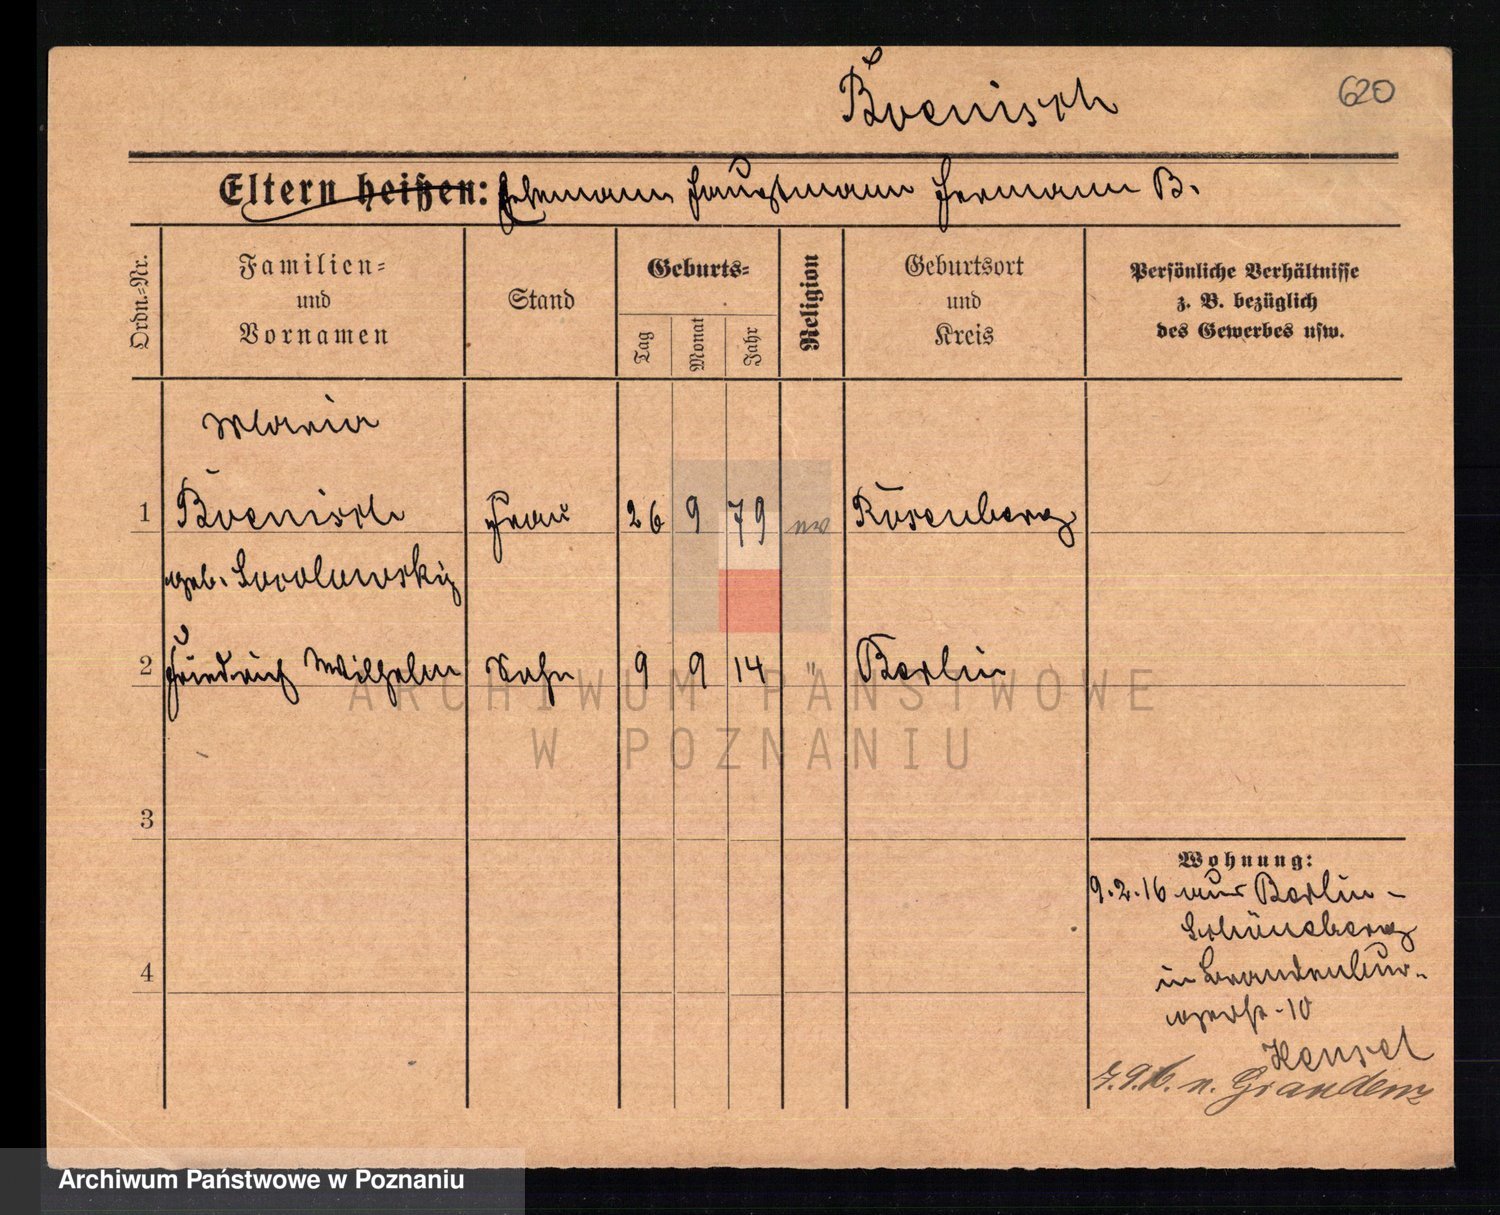 Boenisch
620
Eltern heißen: Ehemann Hauptmann Hermann B.
Ordn.-Nr.
Familien-
und
Vornamen
Stand
Geburts-
Tag
Monat
Jahr
Religion
Geburtsort
und
Kreis
Persönliche Verhältnisse
z. B. bezüglich
des Gewerbes usw.
Maria
1 Boenisch Frau 26 9 79 ev Rosenberg
geb.
2 Friedrich Wilhelm Sohn 9 9 14 " Berlin
3
4
Wohnung:
9.2.16 aus Berlin-
Schöneberg
in Brandenbur-
gerstr. 10
Hensel
9.16. n. Graudenz
ARCHIWUM PAŃSTWOWE
W POZNANIU
Archiwum Państwowe w Poznaniu